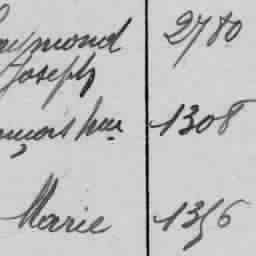 Raymond 2780
Joseph
1308
Marie 1356